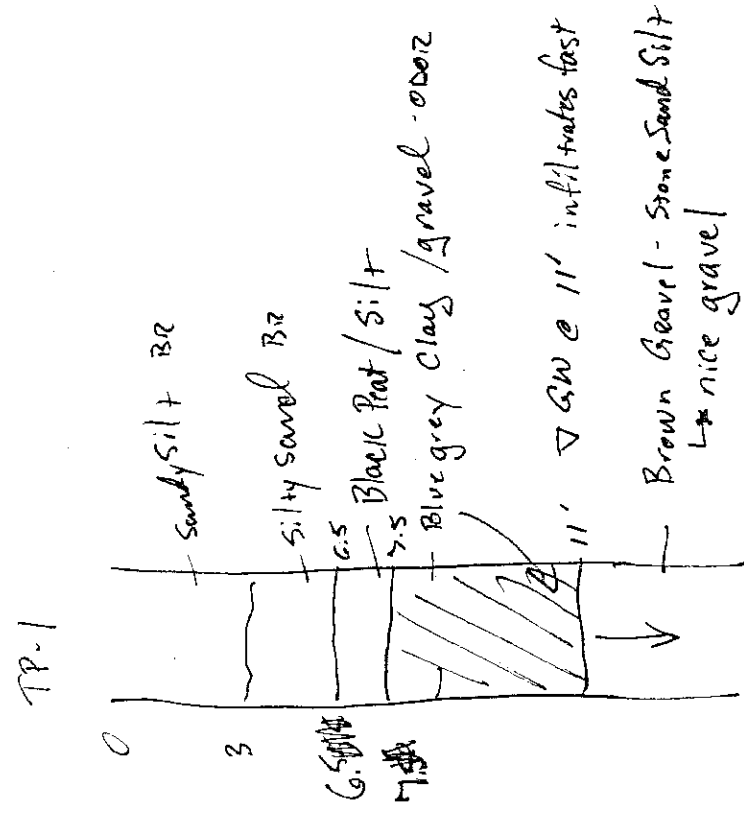 TP-1
0
Sandy Silt BR
3
Silty Sand BR
6.5
6.5
Black Peat / Silt
7.5
7.5
Blue grey Clay / gravel - ODOR
11' ▽ GW @ 11' infiltrates fast
Brown Gravel - Stone Sand Silt
↳ nice gravel